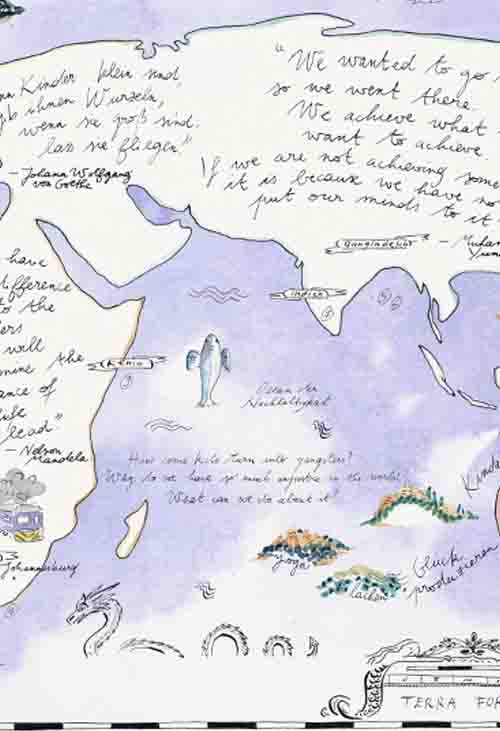 nn Kinder klein sind,
gib ihnen Wurzeln,
wenn sie groß sind,
lass sie fliegen."
– Johann Wolfgang
von Goethe
"We wanted to go
so we went there.
We achieve what
want to achieve.
If we are not achieving some
it is because we have no
put our minds to it
Bangladesch
– Muham
Yunu
Indien
have
difference
to the
will
mine the
ance of
lead."
– Nelson
Mandela
Kenia
Ozean der
Nachhaltigkeit
How come kids turn into gangsters?
Why do we have so much injustice in the world?
What can we do about it?
Johannesburg
Yoga
Lachen
Glück
produzieren
Kinde
TERRA FOR